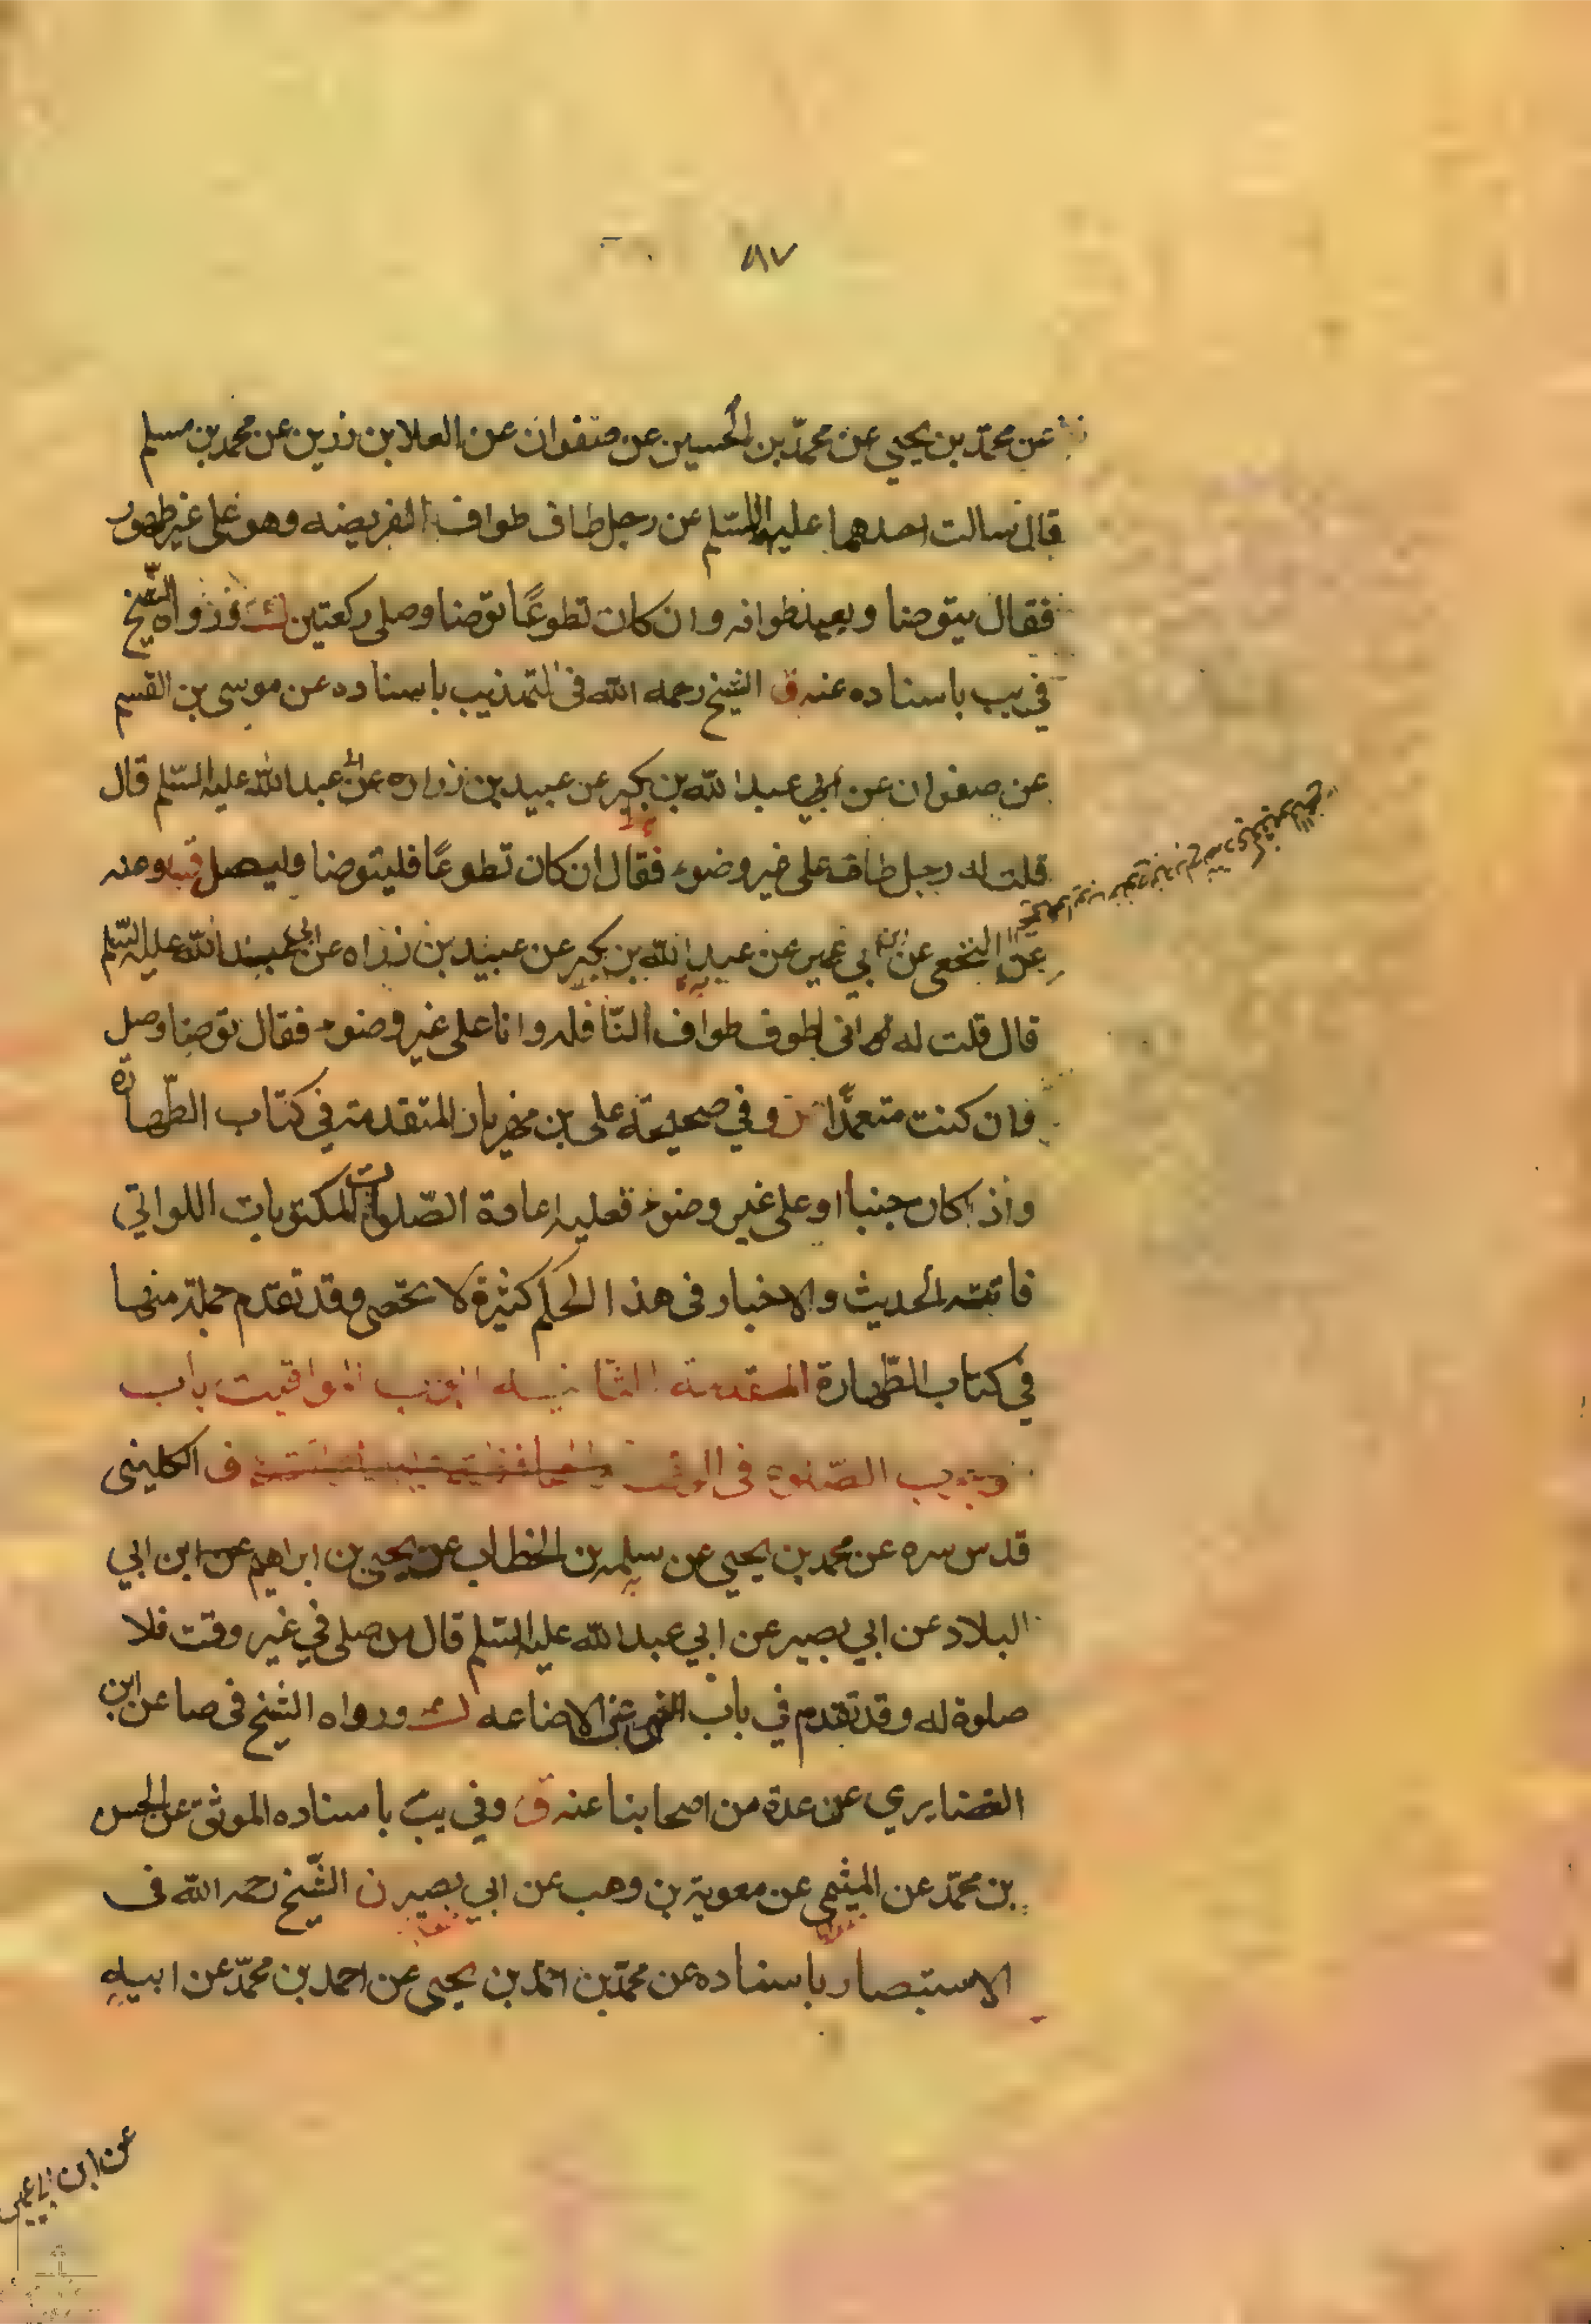 ٨٧
عن محمّد بن يحيى عن محمّد بن الحسين عن صفوان عن العلا بن رزين عن محمد بن مسلم
قال سالت احدهما عليهما السّلم عن رجل طاف طواف الفريضه وهو على غير طهور
فقال يتوضا ويعيد طوافه وان كان تطوعًا توضا وصلى ركعتين ورواه الشّيخ
في يب باسناده عنه ق الشيخ رحمه الله فى التهذيب باسناده عن موسى بن القسم
عن صفوان عن ابي عبد الله بن بكير عن عبيد بن زراره عن ابي عبد الله عليه السّلم قال
قلت له رجل طاف على غير وضوء فقال ان كان تطوعًا فليتوضا وليصل وعنه
عن النخعي عن ابن ابي عمير عن عبد الله بن بكير عن عبيد بن زراه عن ابى عبد الله عليه السّلم
قال قلت له انى اطوف طواف النّافله وانا على غير وضوء فقال توضا وصل
وان كنت متعمّدا ن وفي صحيحة على بن مهزيار المتقدمة في كتاب الطّهارة
واذ اكان جنبا او على غير وضوء فعليه اعادة الصّلوات المكتوبات اللواتي
فاتته الحديث والاخبار فى هذا الحكم كثيرة لا تحصى وقد تقدم جملة منها
في كتاب الطّهارة المقدمة الثانيه المواقيت باب
الصّلوة فى الوقت ف الكلينى
قدس سره عن محمد بن يحيى عن سلمه بن الخطاب عن يحيى بن ابراهيم عن ابن ابي
البلاد عن ابي بصير عن ابي عبد الله عليه السّلم قال من صلى في غير وقت فلا
صلوة له وقد تقدم في باب النهى عن الاضاعه ورواه الشيخ فى صا عن ابن
الغضايري عن عدة من اصحابنا عنه ق وفي يب باسناده الموثق عن الحسن
بن محمّد عن الميثمى عن معوية بن وهب عن ابي بصير ن الشّيخ رحمه الله فى
الاستبصار باسناده عن محمّد بن احمد بن يحيى عن احمد بن محمّد عن ابيه
عن ابن ابي عمير